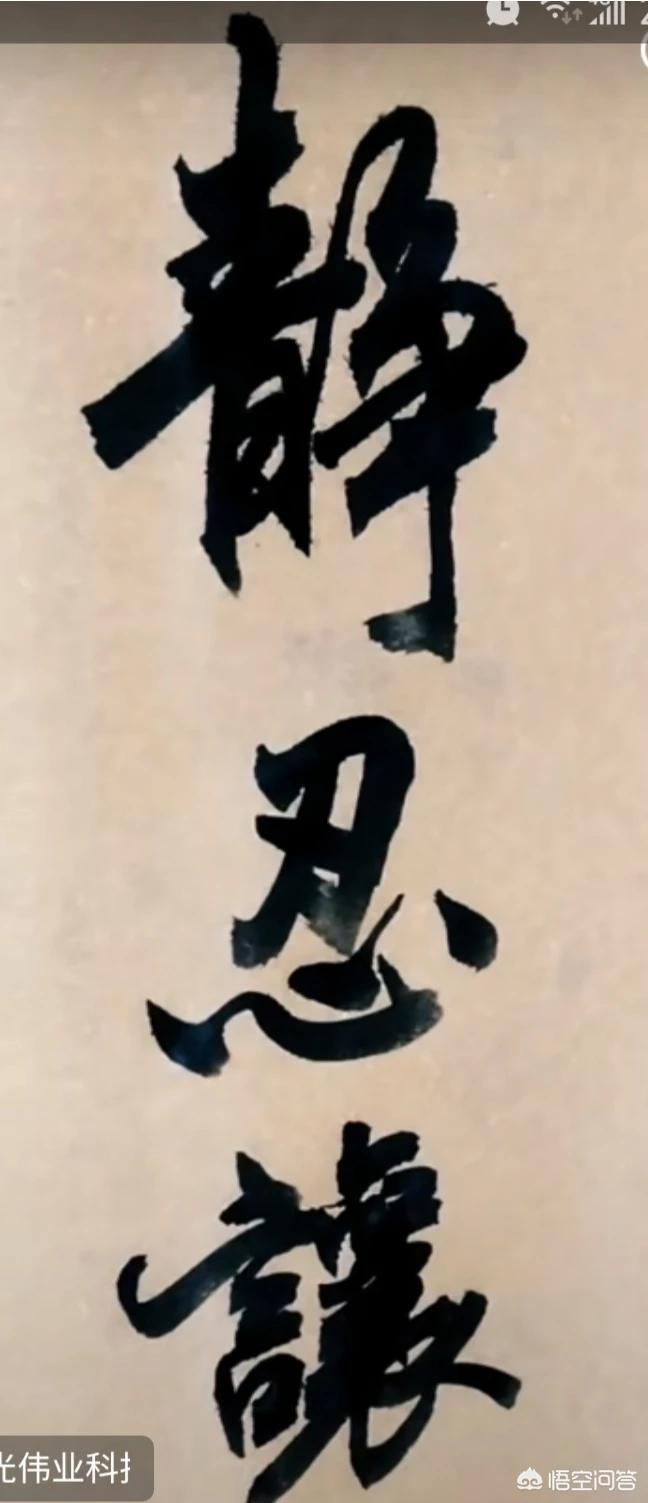 静忍讓
光伟业科技
悟空问答